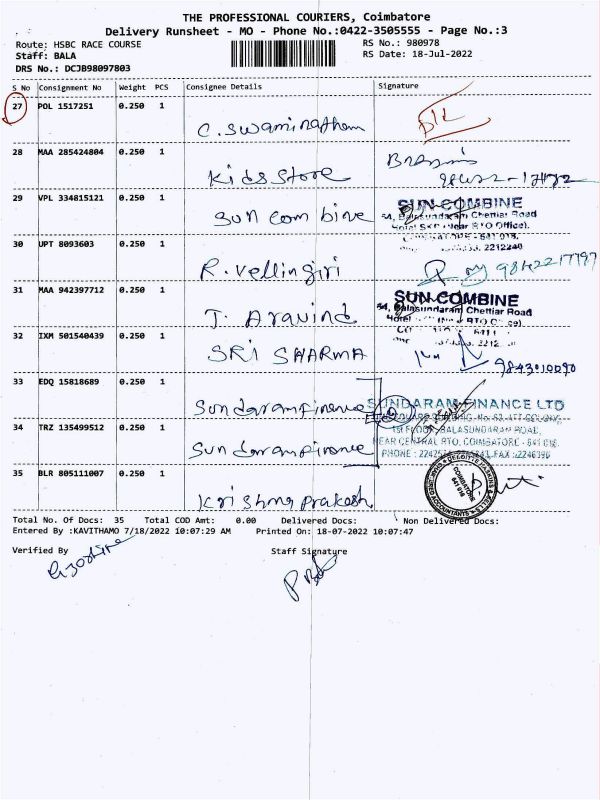 THE PROFESSIONAL COURIERS, Coimbatore
Delivery Runsheet - MO - Phone No.:0422-3505555 - Page No.:3
Route: HSBC RACE COURSE RS No.: 980978
Staff: BALA RS Date: 18-Jul-2022
DRS No.: DCJB98097803
S No Consignment No Weight PCS Consignee Details Signature
27 POL 1517251 0.250 1
C. Swaminathan
28 MAA 285424804 0.250 1
Kids Store
29 VPL 334815121 0.250 1 SUN COMBINE
Sun combine 54, Balasundaram Chettiar Road
(Near RTO Office),
30 UPT 8093603 0.250 1 2212240
R. Vellingiri 9842217797
31 MAA 942397712 0.250 1 SUN COMBINE
54, Balasundaram Chettiar Road
T. Aravind
32 IXM 501540439 0.250 1
SRI SHARMA 9843010090
33 EDQ 15818689 0.250 1
Sundaramfinance SUNDARAM FINANCE LTD
34 TRZ 135499512 0.250 1 1st FLOOR, BALASUNDARAM ROAD,
Sundaramfinance NEAR CENTRAL RTO, COIMBATORE - 641 018.
35 BLR 805111007 0.250 1
Krishna prakash
Total No. Of Docs: 35 Total COD Amt: 0.00 Delivered Docs: Non Delivered Docs:
Entered By :KAVITHAMO 7/18/2022 10:07:29 AM Printed On: 18-07-2022 10:07:47
Verified By Staff Signature